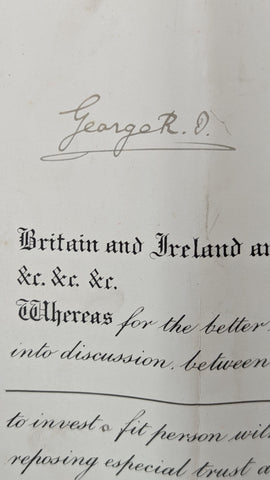 George R. I.
Britain and Ireland an
&c. &c. &c.
Whereas for the better
into discussion between
to invest a fit person wit
reposing especial trust a